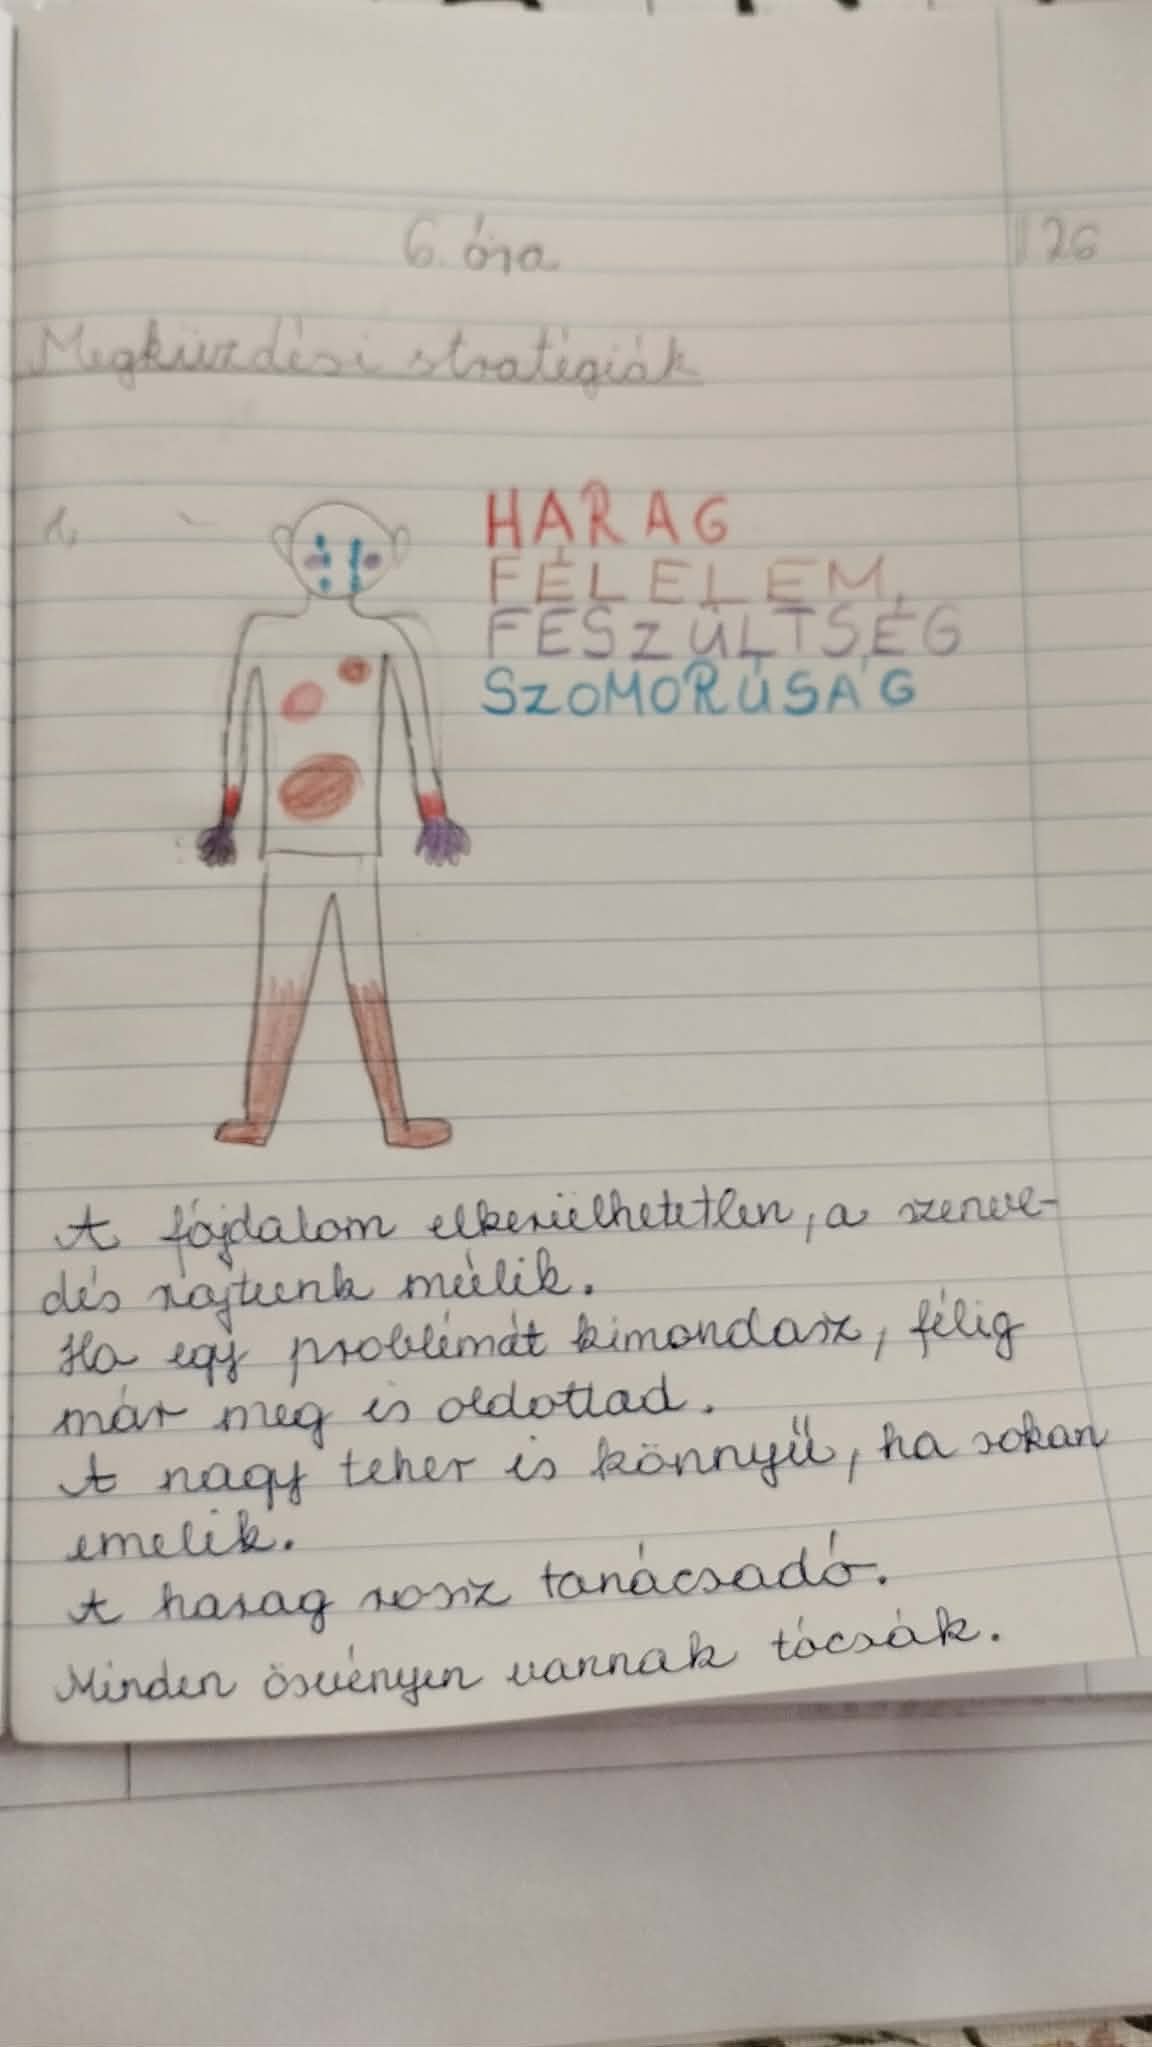 6. óra
126
Megküzdési stratégiák
1,
HARAG
FÉLELEM,
FESZÜLTSÉG
SZOMORÚSÁG
A fájdalom elkerülhetetlen, a szenve-
dés rajtunk múlik.
Ha egy problémát kimondasz, félig
már meg is oldottad.
A nagy teher is könnyű, ha sokan
emelik.
A harag rossz tanácsadó.
Minden ösvényen vannak tócsák.